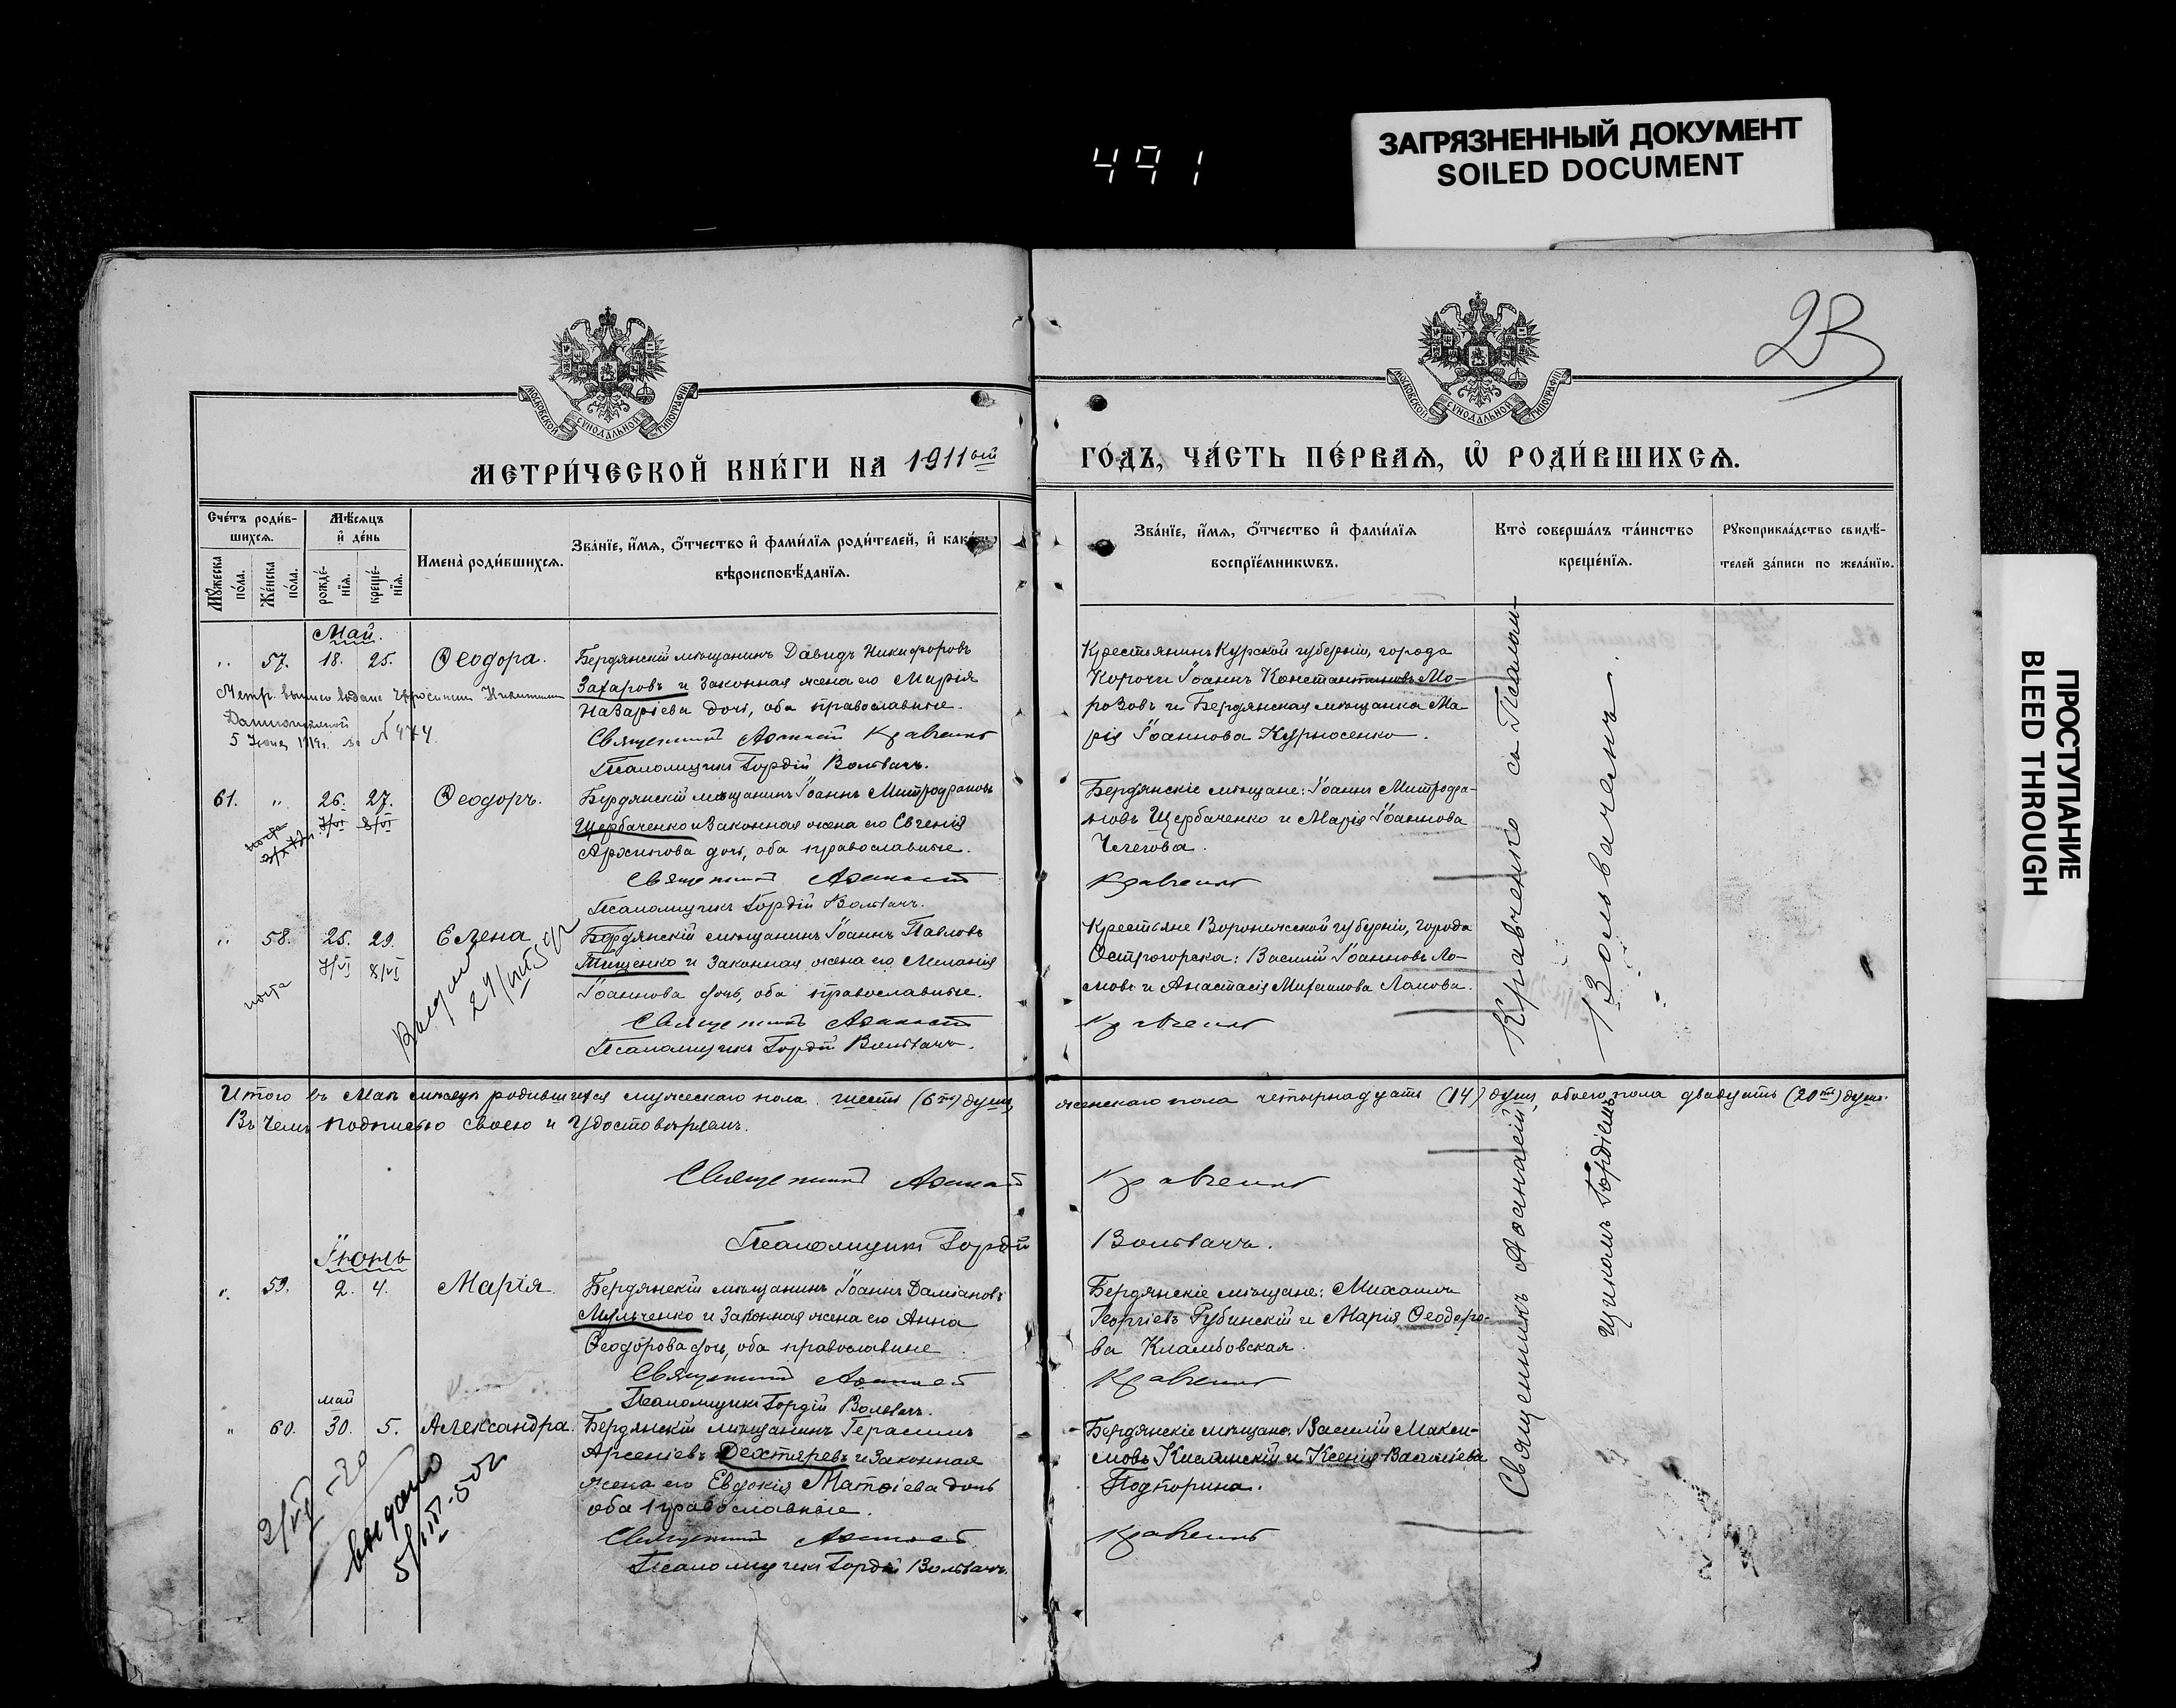 491
ЗАГРЯЗНЕННЫЙ ДОКУМЕНТ
SOILED DOCUMENT
ПРОСТУПАНИЕ
BLEED THROUGH
23
МОСКОВСКОЙ СѴНОДАЛЬНОЙ ТИПОГРАФІИ
МОСКОВСКОЙ СѴНОДАЛЬНОЙ ТИПОГРАФІИ
МЕТРИ́ЧЕСКОЙ КНИ́ГИ НА 1911ый
ГО́ДЪ, ЧА́СТЬ ПЕ́РВАѦ, Ѡ҆ РОДИ́ВШИХСѦ.
Сче́тъ роди́в-
шихсѧ.
Мꙋ́жеска по́ла.
Же́нска по́ла.
Мѣ́сѧцъ
и҆ де́нь
рожде́-
нїѧ.
креще́-
нїѧ.
Имена̀ роди́вшихсѧ.
Зва́нїе, и҆́мѧ, ѻ҆́тчество и҆ фами́лїѧ роди́телей, и҆ како́гѡ
вѣроисповѣ́данїѧ.
Зва́нїе, и҆́мѧ, ѻ҆́тчество и҆ фами́лїѧ
воспрїе́мникѡвъ.
Кто̀ соверша́лъ та́инство
креще́нїѧ.
Рꙋкоприкла́дство свидѣ́-
телей за́писи по жела́нїю.
Май.
" 57. 18. 25. Ѳеодора.
Бердянскій мѣщанинъ Давидъ Никифоровъ
Захаровъ и законная жена его Марія
Назаріева дочь, оба православные.
Священникъ Аѳанасій Кравченко
Псаломщикъ Гордій Вольвачъ.
Крестьянинъ Курской губерніи, города
Корочи Іоаннъ Константиновъ Мо-
розовъ и Бердянская мѣщанка Ма
рія Іоаннова Курносенко.
5 1919г. № 474
61. " 26. 27. Ѳеодоръ.
Бердянскій мѣщанинъ Іоаннъ Митрофановъ
Щербаченко и законная жена его Евгенія
Архипова дочь, оба православные.
Священникъ Аѳанасій
Псаломщикъ Гордій Вольвачъ.
Бердянскіе мѣщане: Іоаннъ Митрофа-
новъ Щербаченко и Марія Іоаннова
Кравченко
" 58. 25. 29. Елена
7/VI 8/VI
почта
Бердянскій мѣщанинъ Іоаннъ Павловъ
Тищенко и законная жена его Меланія
Іоаннова дочь, оба православные.
Священникъ Аѳанасій
Псаломщикъ Гордій Вольвачъ.
Крестьяне Воронежской губерніи, города
Острогорска: Василій Іоанновъ Ло-
мовъ и Анастасія Михаилова Ломова.
Кравченко
Итого въ Маѣ мѣсяцѣ родившихся мужескаго пола шесть (6ть) душъ,
женскаго пола четырнадцать (14) душъ, обоего пола двадцать (20ть) душъ.
Въ чемъ подписью своею и удостовѣряемъ.
Священникъ Аѳанасій
Кравченко
Псаломщикъ Гордій
Вольвачъ.
Іюнь
" 59. 2. 4. Марія
Бердянскій мѣщанинъ Іоаннъ Даміановъ
Мульченко и законная жена его Анна
Ѳеодорова дочь, оба православные
Священникъ Аѳанасій
Псаломщикъ Гордій Вольвачъ.
Бердянскіе мѣщане: Михаилъ
Георгіевъ Рубинскій и Марія Ѳеодоро-
ва
Кравченко
май
" 60. 30. 5. Александра.
выдано
Бердянскій мѣщанинъ Герасимъ
Арсеніевъ Дехтяревъ и законная
жена его Евдокія Матѳіева дочь
оба православные.
Священникъ Аѳанасій
Псаломщикъ Гордій Вольвачъ.
Бердянскіе мѣщане: Василій Макси-
мовъ и Ксенія Василіева
Подпорина.
Кравченко
Священникъ Аѳанасій Кравченко съ Псалом-
щикомъ Гордіемъ Вольвачемъ.